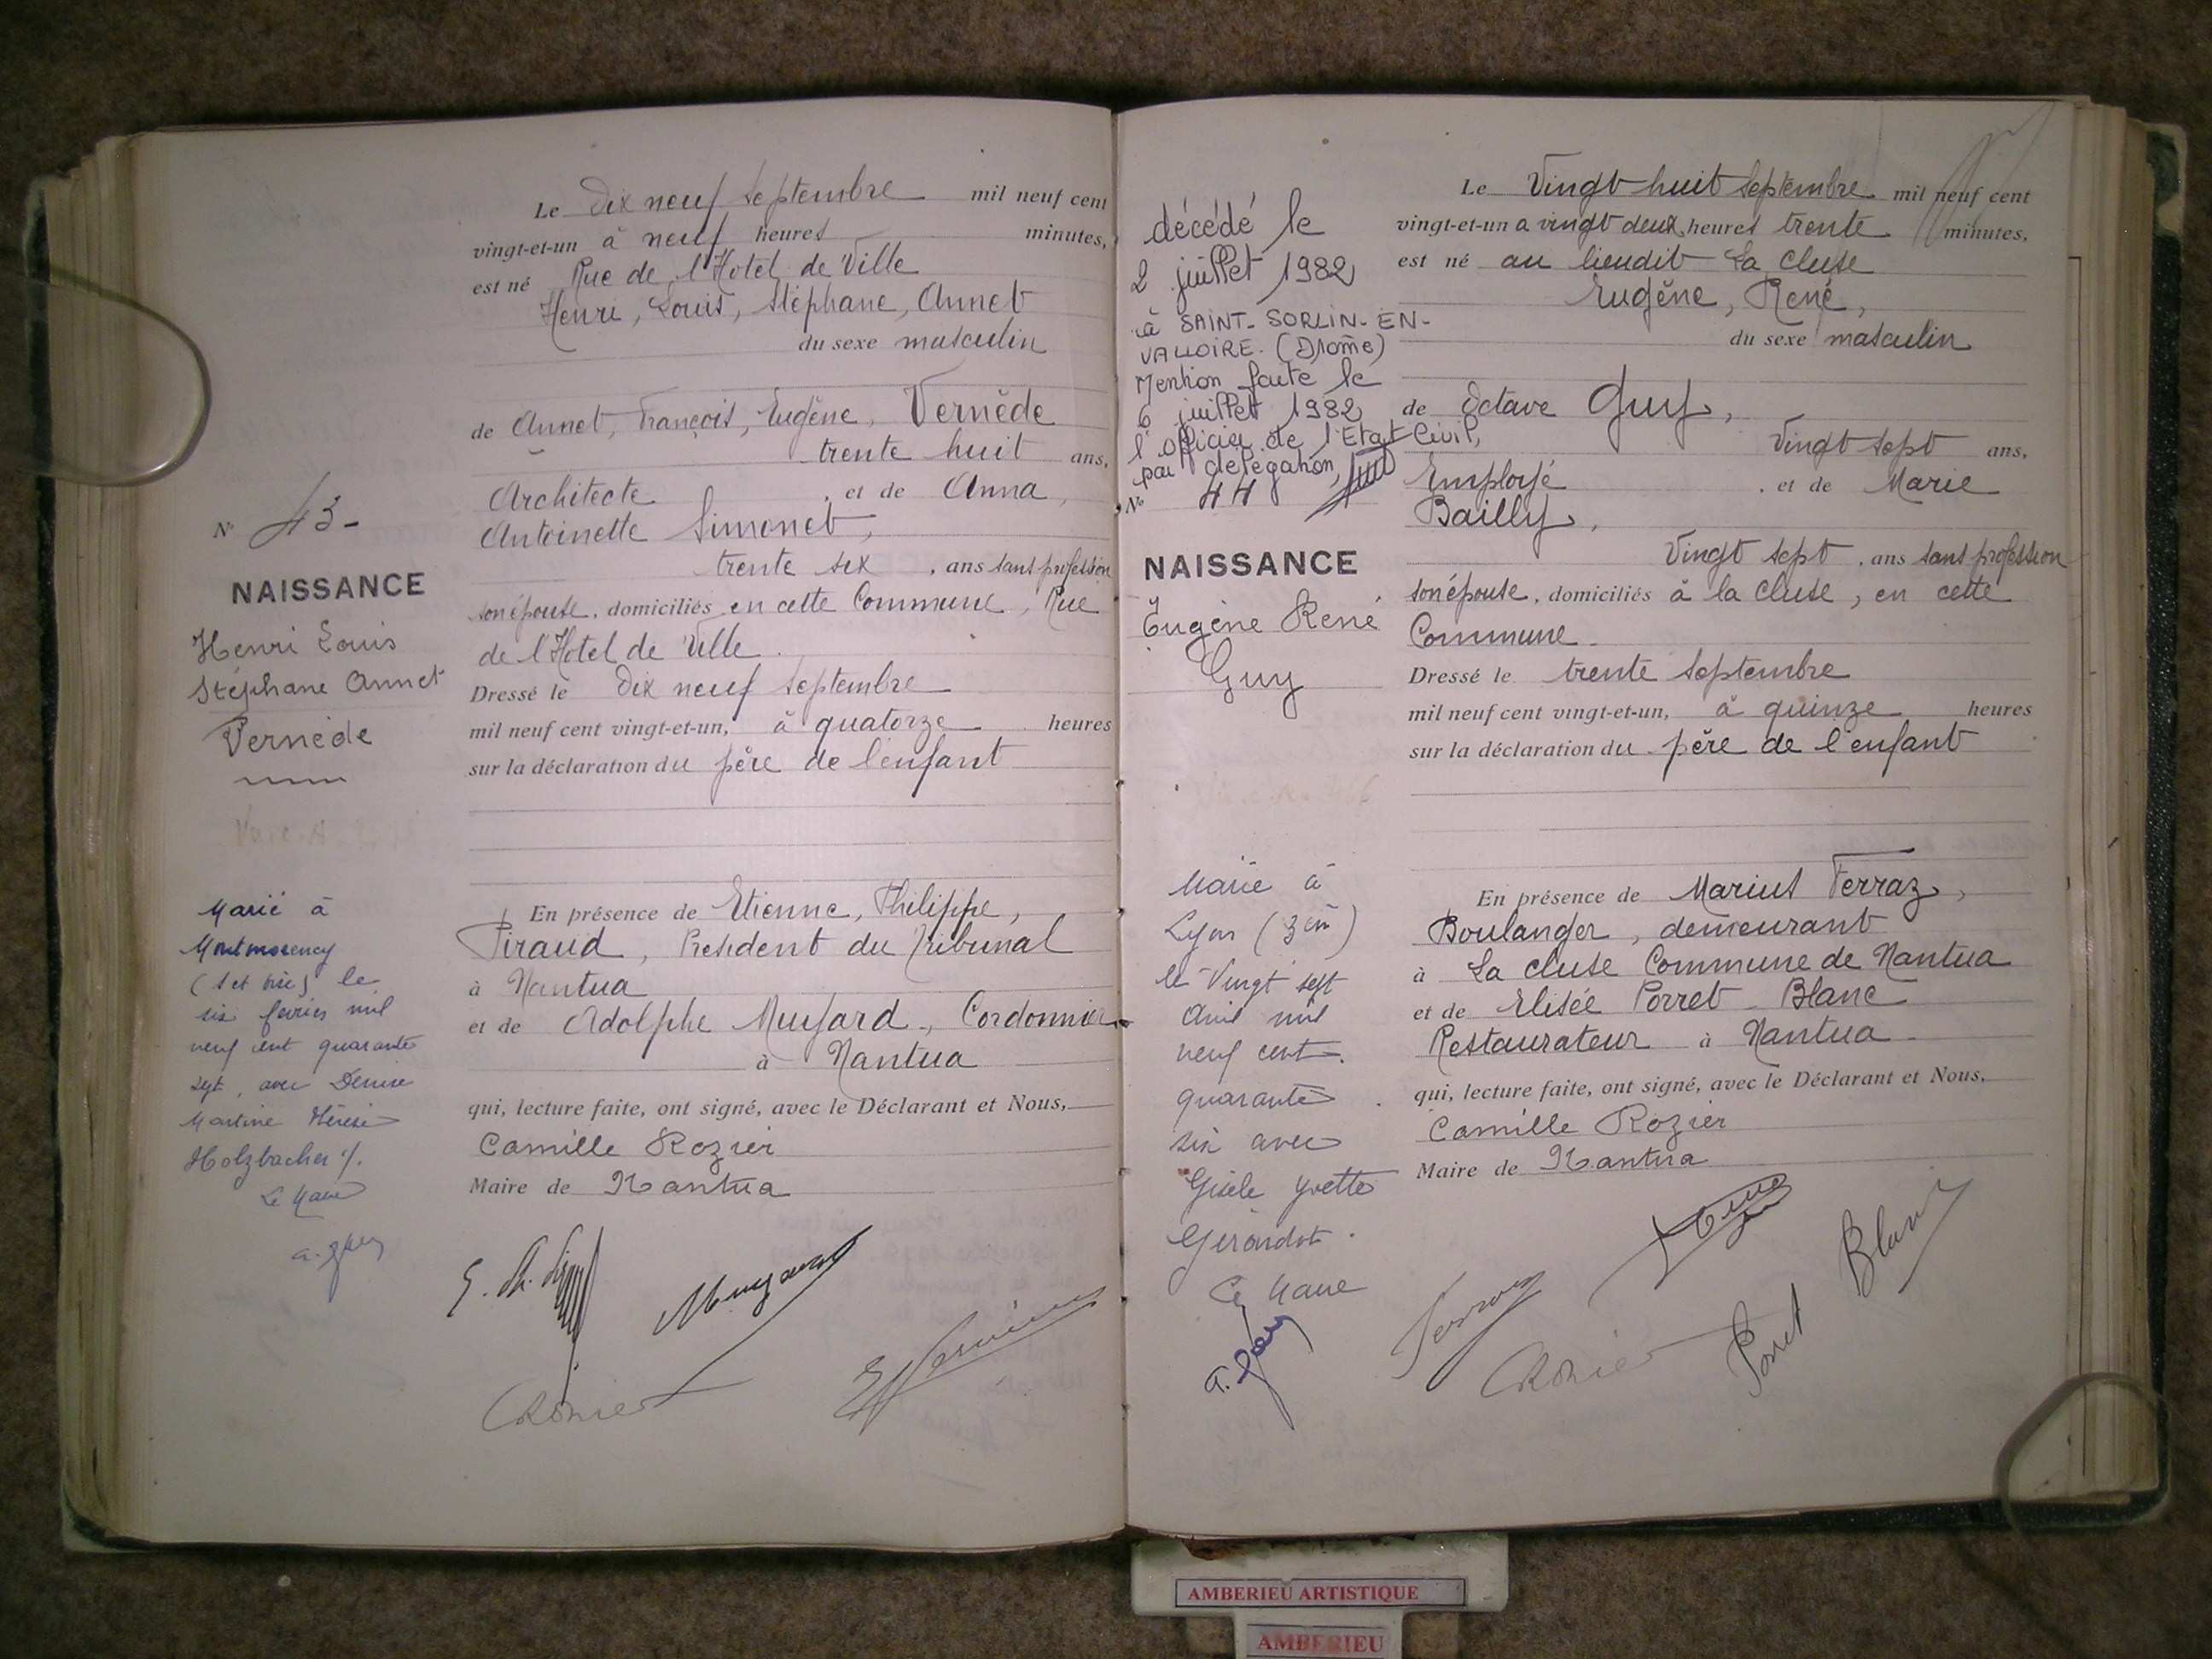 Le Dix neuf Septembre mil neuf cent
vingt-et-un à neuf heures minutes,
est né Rue de l'Hotel de Ville
Henri, Louis, Stéphane, Annet
du sexe masculin
de Annet, François, Eugène, Vernède
trente huit ans,
Architecte , et de Anna,
Antoinette Simonet,
trente six , ans sans profession
son épouse, domiciliés en cette Commune, Rue
de l'Hotel de Ville.
Dressé le Dix neuf Septembre
mil neuf cent vingt-et-un, à quatorze heures
sur la déclaration du père de l'enfant
En présence de Etienne, Philippe,
Piraud, Président du Tribunal
à Nantua
et de Adolphe Muyard, Cordonnier
à Nantua
qui, lecture faite, ont signé, avec le Déclarant et Nous,
Camille Rozier
Maire de Nantua
N° 43-
NAISSANCE
Henri Louis
Stéphane Annet
Vernède
Marié à
Montmorency
(S et Oise) le
six février mil
neuf cent quarante
sept, avec Denise
Martine Thérèse
Holzbacher ./.
Le Maire
Muyard
CRozier
décédé le
2 juillet 1982
à SAINT-SORLIN-EN-
VALLOIRE. (Drôme)
Mention faite le
6 juillet 1982
l'officier de l'Etat-Civil,
par délégation,
N° 44
NAISSANCE
Eugène René
Guy
Marié à
Lyon (3em)
le Vingt sept
Avril mil
neuf cent
quarante
six avec
Gisèle Yvette
Girondot.
Le Maire
Le Vingt huit Septembre mil neuf cent
vingt-et-un a vingt deux heures trente minutes,
est né au lieudit La Cluse
Eugène, René,
du sexe masculin
de Octave Guy,
Vingt sept ans,
Employé , et de Marie
Bailly,
Vingt sept , ans sans profession
son épouse, domiciliés à la Cluse, en cette
Commune.
Dressé le trente Septembre
mil neuf cent vingt-et-un, à quinze heures
sur la déclaration du père de l'enfant
En présence de Marius Ferraz,
Boulanger, demeurant
à La Cluse Commune de Nantua
et de Elisée Porret-Blanc
Restaurateur à Nantua
qui, lecture faite, ont signé, avec le Déclarant et Nous,
Camille Rozier
Maire de Nantua
Ferraz
CRozier
Porret Blanc
AMBERIEU ARTISTIQUE
AMBERIEU